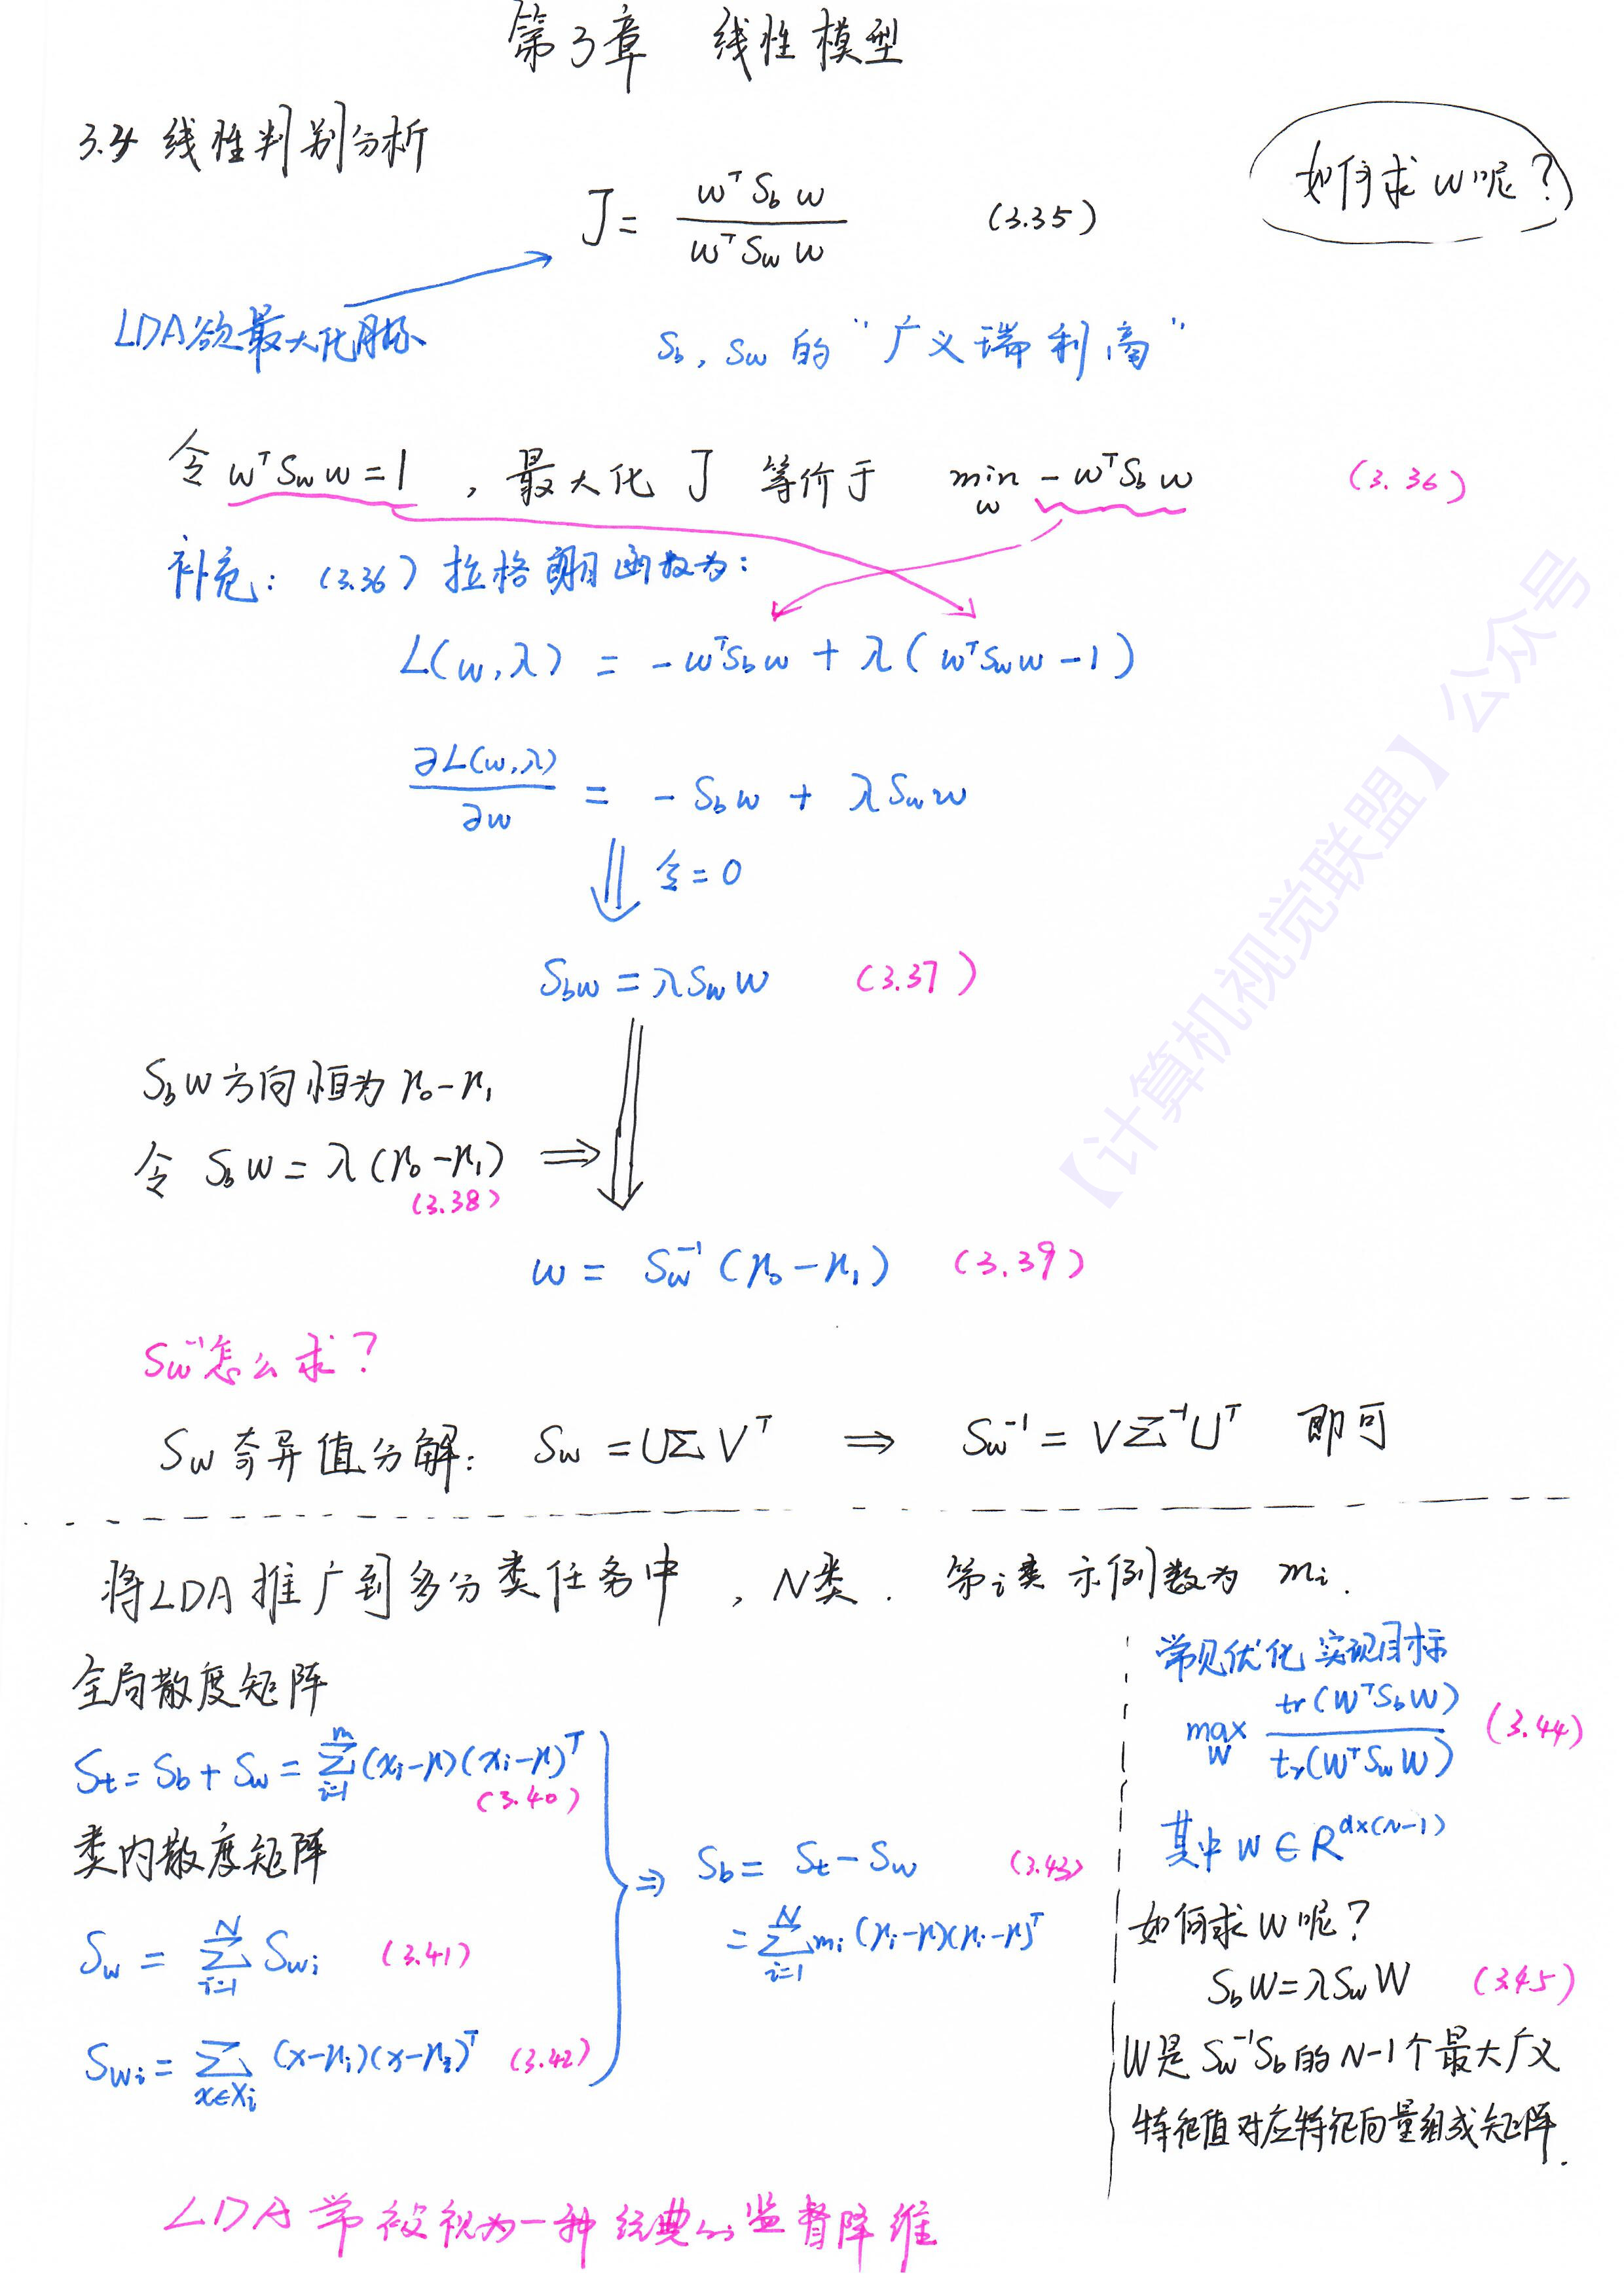 第3章 线性模型
3.4 线性判别分析
如何求 w 呢?
J = wᵀ S_b w / wᵀ S_w w (3.35)
LDA欲最大化目标
S_b, S_w 的 "广义瑞利商"
令 wᵀ S_w w = 1 , 最大化 J 等价于 min_w − wᵀ S_b w (3.36)
补充: (3.36) 拉格朗日函数为:
L(w,λ) = − wᵀ S_b w + λ ( wᵀ S_w w − 1 )
∂L(w,λ) / ∂w = − S_b w + λ S_w w
⇓ 令 = 0
S_b w = λ S_w w (3.37)
S_b w 方向恒为 μ₀ − μ₁
令 S_b w = λ (μ₀ − μ₁) ⇒
(3.38)
w = S_w⁻¹ (μ₀ − μ₁) (3.39)
S_w⁻¹ 怎么求?
S_w 奇异值分解: S_w = U Σ Vᵀ ⇒ S_w⁻¹ = V Σ⁻¹ Uᵀ 即可
将LDA 推广到多分类任务中 , N类 . 第i类 示例数为 m_i .
全局散度矩阵
S_t = S_b + S_w = Σ_{i=1}^{m} (x_i − μ)(x_i − μ)ᵀ
(3.40)
类内散度矩阵
S_w = Σ_{i=1}^{N} S_{w_i} (3.41)
S_{w_i} = Σ_{x∈X_i} (x − μ_i)(x − μ_i)ᵀ (3.42)
⇒ S_b = S_t − S_w (3.43)
= Σ_{i=1}^{N} m_i (μ_i − μ)(μ_i − μ)ᵀ
常见优化实现目标
max_W tr(Wᵀ S_b W) / tr(Wᵀ S_w W) (3.44)
其中 W ∈ R^{d×(N−1)}
如何求 W 呢?
S_b W = λ S_w W (3.45)
W 是 S_w⁻¹ S_b 的 N−1 个最大广义
特征值对应特征向量组成矩阵.
LDA 常被视为一种经典的监督降维
【计算机视觉联盟】公众号